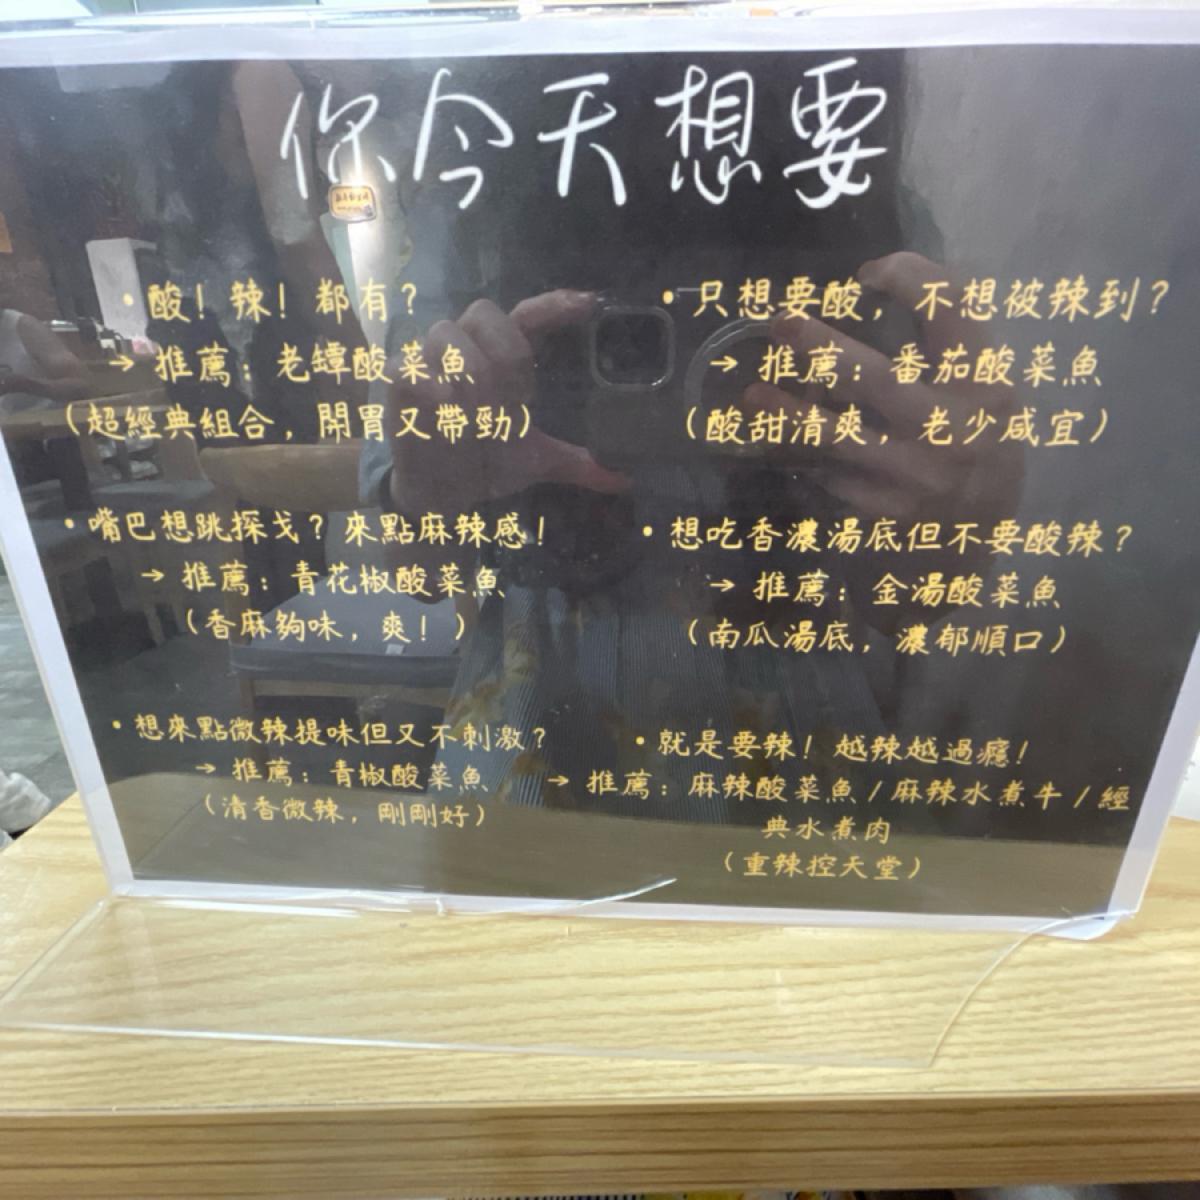 你今天想要
・酸！辣！都有？
→ 推薦：老罈酸菜魚
（超經典組合，開胃又帶勁）
・只想要酸，不想被辣到？
→ 推薦：番茄酸菜魚
（酸甜清爽，老少咸宜）
・嘴巴想跳探戈？來點麻辣感！
→ 推薦：青花椒酸菜魚
（香麻夠味，爽！）
・想吃香濃湯底但不要酸辣？
→ 推薦：金湯酸菜魚
（南瓜湯底，濃郁順口）
・想來點微辣提味但又不刺激？
→ 推薦：青椒酸菜魚
（清香微辣，剛剛好）
・就是要辣！越辣越過癮！
→ 推薦：麻辣酸菜魚/麻辣水煮牛/經
典水煮肉
（重辣控天堂）